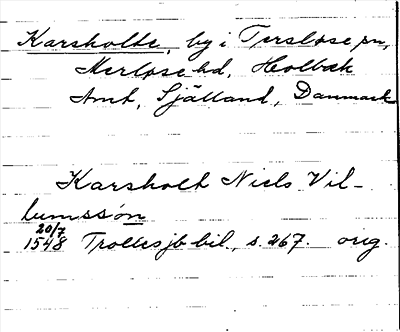 Karsholte, by i Tersløse sn,
Merløse hd, Holbæk
Amt, Själland, Danmark
Karsholt Niels Vil-
lumssøn
20/7
1548 Trolles jb bil., s. 267. orig.